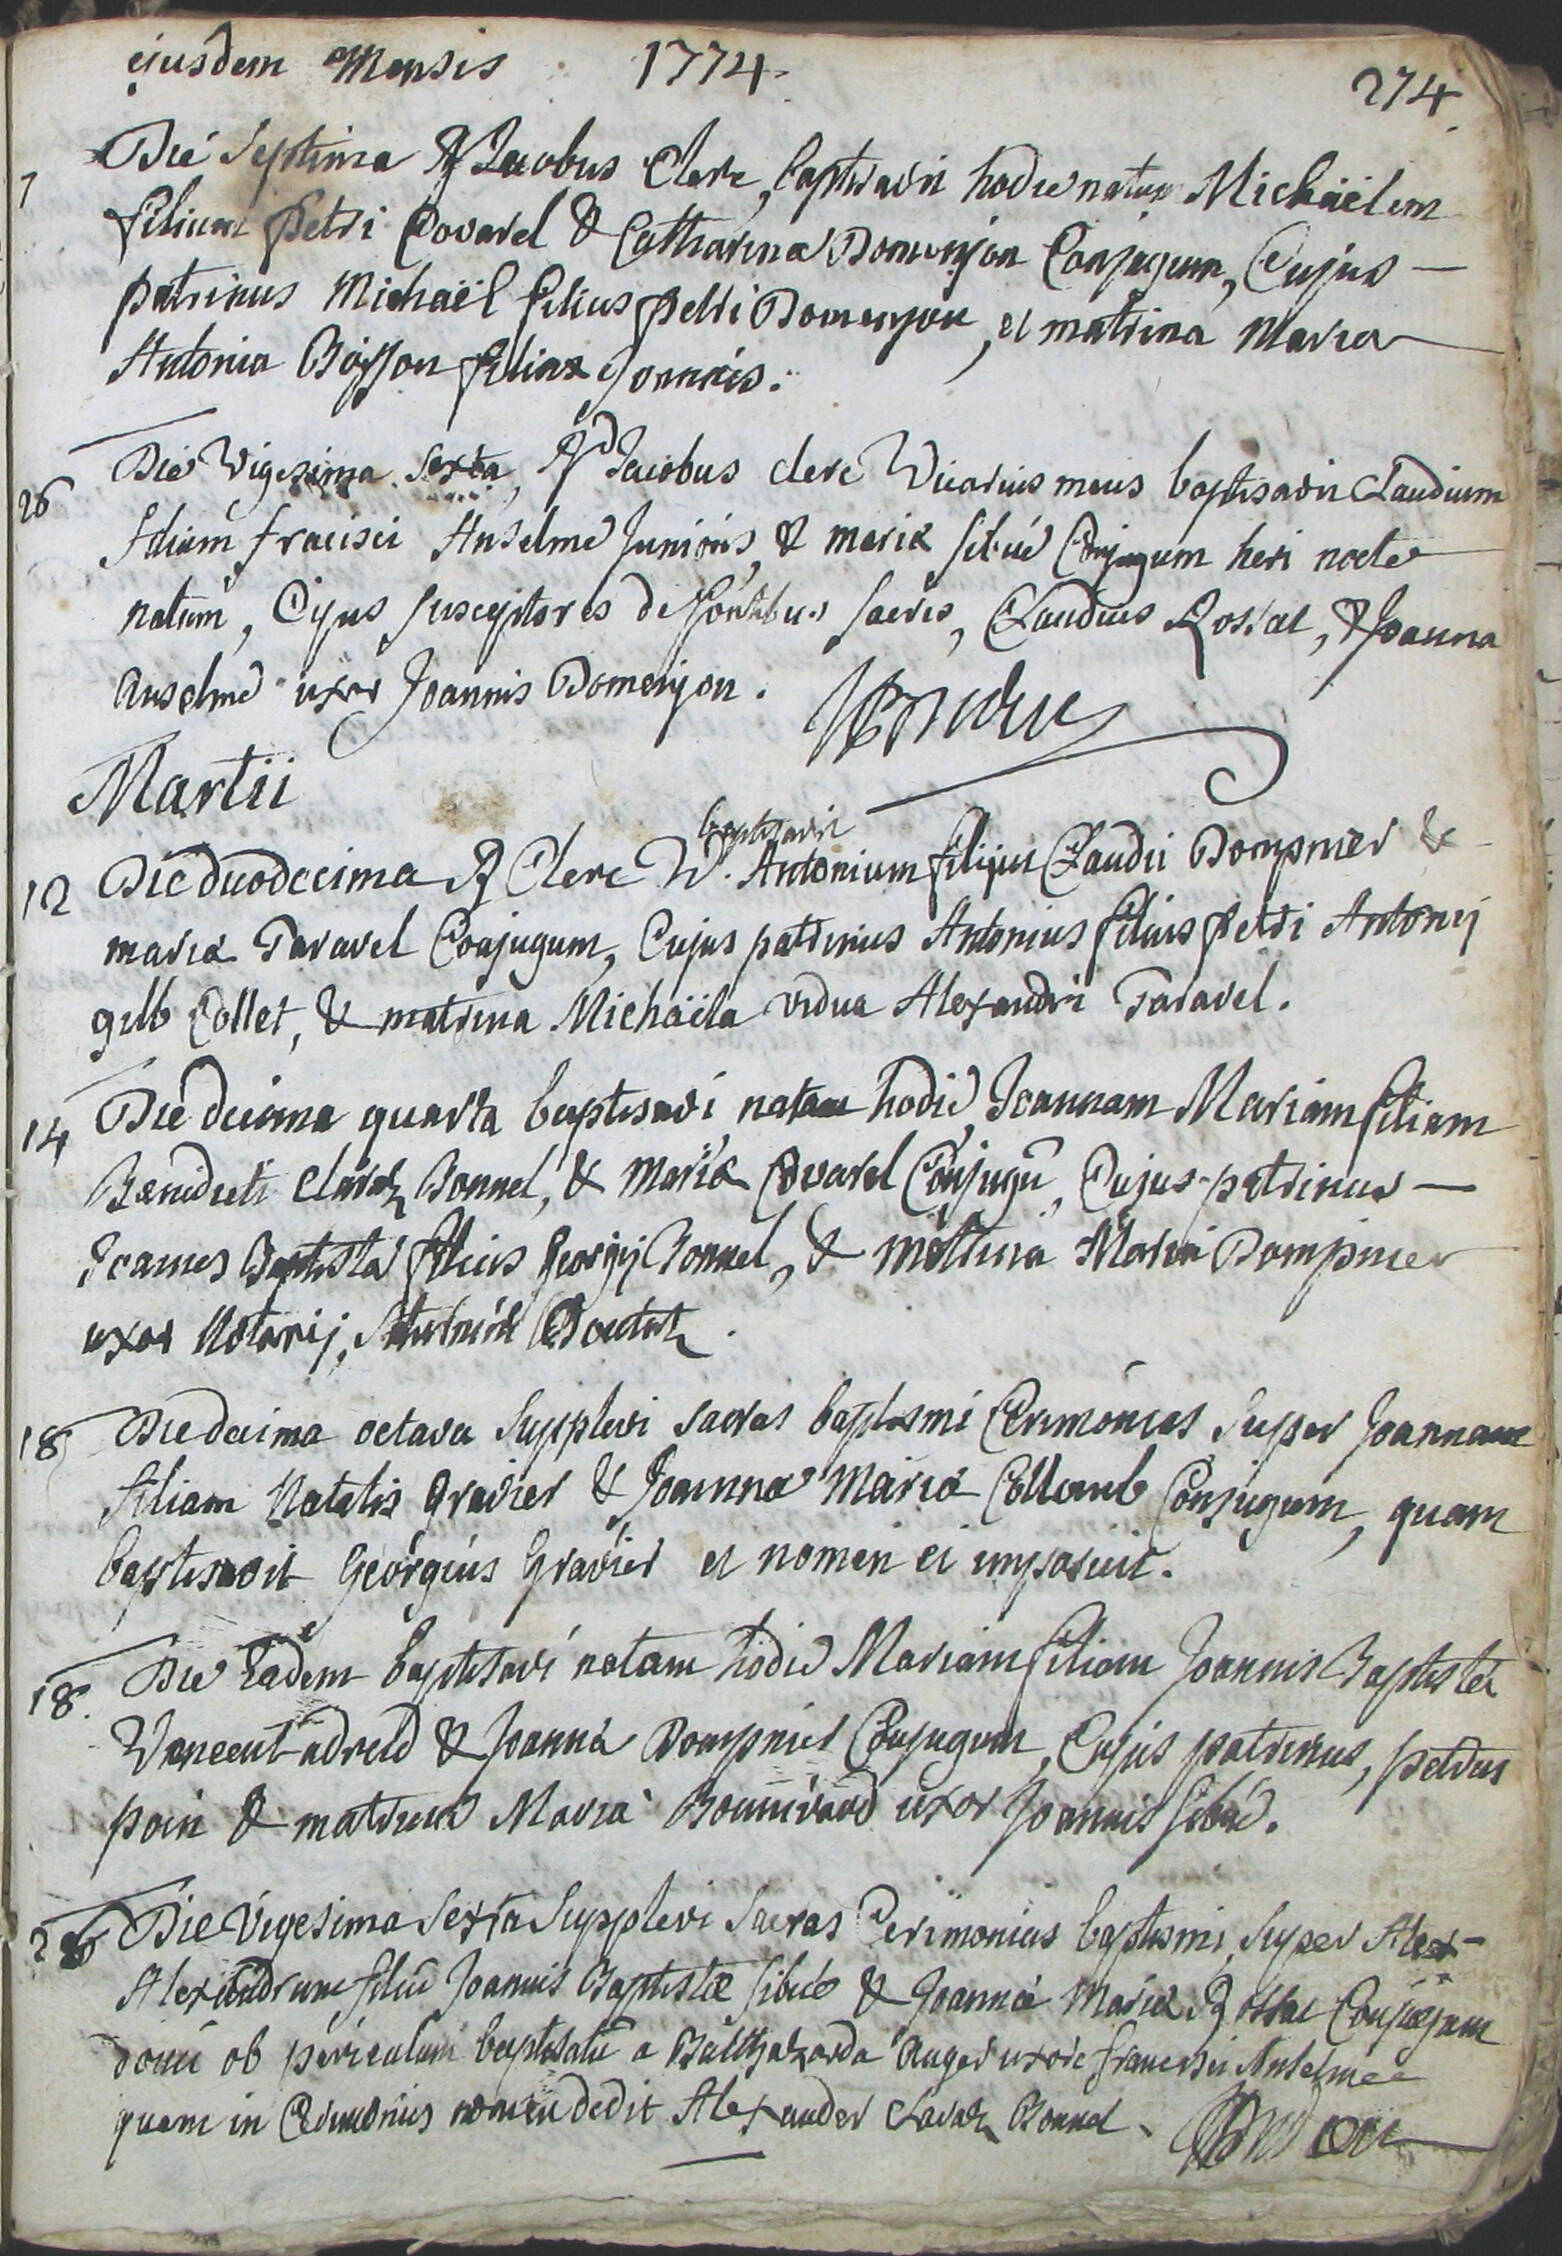 ejusdem Mensis 1774. 274
7 Die Septima Rd Jacobus Clerc, baptisavit hodie natum Michäelem
filium petri Covarel & Catharina Domenjon Conjugum, Cujus
patrinus Michaël filius petri Domenjon, et matrina Maria
Antonia Boisson filia Joannis.
26 Die Vigesima Sexta, Rd Jacobus clerc Vicarius meus baptisavit Claudium
filium francisci Anselme Junioris, & mariæ sibué Conjugum heri nocte
natum, Cujus susceptores de fontibus sacris, Claudius Rossat, & Joanna
Anselme uxor Joannis Domenjon.
Martii
baptisavit
12 Die duodecima Rd Clerc V. Antonium filium Claudii Dompnier &
mariæ Taravel Conjugum, Cujus patrinus Antonius filius petri Antonij
gilb Collet, & matrina Michaëla vidua Alexandri Taravel.
14 Die decima quarta baptisavi natam hodie Joannam Mariam filiam
Benedicti claraz Bonnel, & mariæ Covarel Conjugū, Cujus patrinus
Joannes Baptista filius Georgij Bonnel, & matrina Maria Dompnier
uxor Notarij,
18 Die decima octava supplevi sacras baptismi Cerimonias super Joannam
filiam Natalis Gravier & Joannæ Mariæ Collomb Conjugum, quam
baptisavit Georgius Gravier et nomen ei imposuit.
18. Die Eadem baptisavi natam hodie Mariam filiam Joannis Baptistæ
Vincent adreld & Joannæ Dompnier Conjugum, Cujus patrinus, petrus
poin & matrina Maria Bonnivard uxor Joannis sibué.
26 Die Vigesima Sexta Supplevi Sacras Cerimonias baptismi, super Alex-
Alexandrum filiū Joannis Baptistæ sibué & Joannæ Mariæ Rossat Conjugum
domi ob periculum baptisatū a Balthazarda Auger uxore francisci Anselme
quem in Cerimoniis nomen dedit Alexander claraz Bonnel.